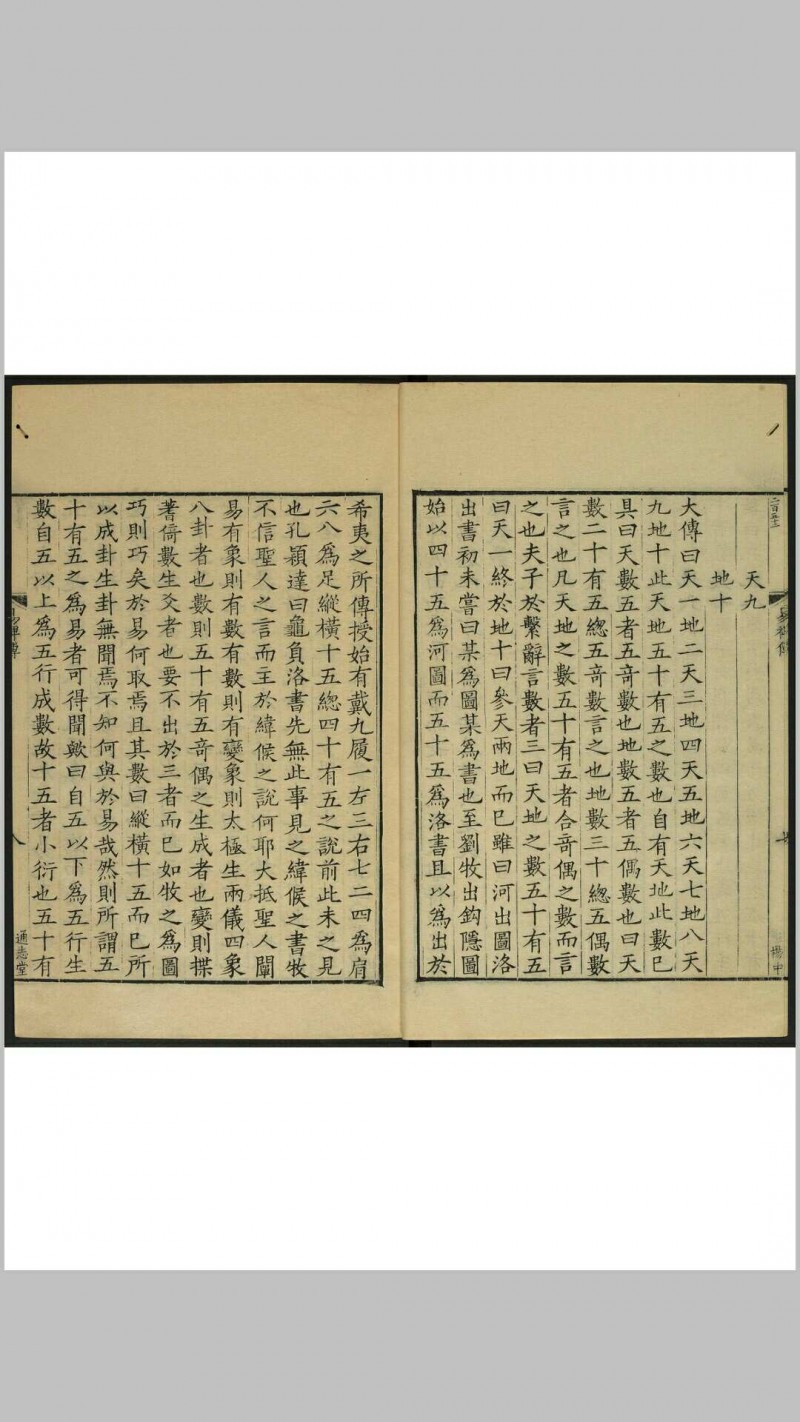 天九
地十
大傳曰天一地二天三地四天五地六天七地八天
九地十此天地五十有五之數也自有天地此數已
具曰天數五者五竒數也地數五者五偶數也曰天
數二十有五總五竒數言之也地數三十總五偶數
言之也凡天地之數五十有五者合竒偶之數而言
之也夫子於繫辭言數者三曰天地之數五十有五
曰天一終於地十曰參天兩地而已雖曰河出圖洛
出書初未嘗曰某為圖某為書也至劉牧出鈎隱圖
始以四十五爲河圖而五十五爲洛書且以爲出於
易稗傳
楊中
希夷之所傳授始有戴九履一左三右七二四爲肩
六八爲足縱橫十五總四十有五之説前此未之見
也孔穎達曰龜負洛書先無此事見之緯候之書牧
不信聖人之言而主於緯候之説何耶大抵聖人闡
易有象則有數有數則有變象則太極生兩儀四象
八卦者也數則五十有五竒偶之生成者也變則揲
蓍倚數生爻者也要不出於三者而已如牧之爲圖
巧則巧矣於易何取焉且其數曰縱橫十五而已所
以成卦生卦無聞焉不知何與於易哉然則所謂五
十有五之爲易者可得聞歟曰自五以下爲五行生
數自五以上爲五行成數故十五者小衍也五十有
八
通志堂